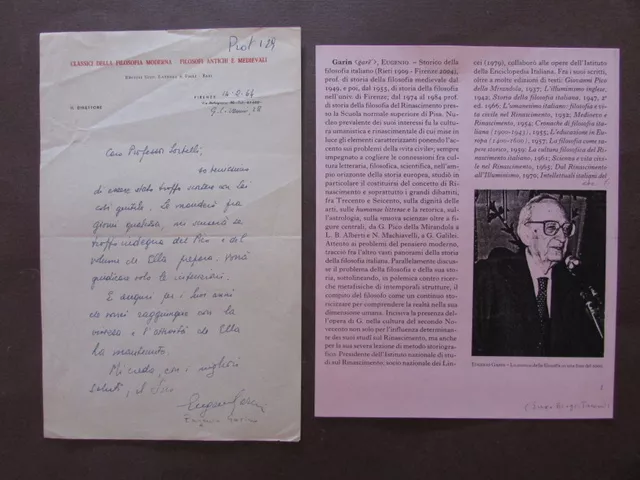 Prot 129
CLASSICI DELLA FILOSOFIA MODERNA FILOSOFI ANTICHI E MEDIEVALI
IL DIRETTORE
FIRENZE
Caro Professor
di essere stato troppo con Lei
così gentile. Le manderò fra
giorni qualcosa, mi
troppo indegna del Pico e del
volume che Ella prepara. Vorrà
giudicare solo le intenzioni.
E auguri per i Suoi anni
che vorrei raggiungere con la
e l'attività che Ella
ha mantenuto.
Mi creda, con i migliori
saluti, il Suo
Eugenio Garin
Eugenio Garin
Garin, EUGENIO - Storico della
filosofia italiano (Rieti 1909 - Firenze 2004),
prof. di storia della filosofia medievale dal
1949, e poi, dal 1955, di storia della filosofia
nell'univ. di Firenze; dal 1974 al 1984 prof.
di storia della filosofia del Rinascimento presso
la Scuola normale superiore di Pisa. Nucleo
prevalente dei suoi interessi fu la cultura
umanistica e rinascimentale di cui mise in
luce gli elementi caratterizzanti ponendo l'accento
sui problemi della «vita civile»; sempre
impegnato a cogliere le connessioni fra cultura
letteraria, filosofica, scientifica, entro ampio
orizzonte della storia europea, studiò in
particolare il costituirsi del concetto di Rinascimento
e soprattutto i grandi dibattiti,
fra Trecento e Seicento, sulla dignità delle
arti, sulle humanae litterae e la retorica, sull'astrologia,
sulla «nuova scienza» oltre a figure
centrali quali, da G. Pico della Mirandola a
L. B. Alberti e N. Machiavelli, a G. Galilei.
Attento ai problemi del pensiero moderno,
tracciò fra l'altro vasti panorami della storia
della filosofia italiana. Parallelamente discusse
il problema della filosofia e della sua storia,
sottolineando, in polemica contro ricerche
metafisiche di intemporali strutture, il
compito del filosofo come un continuo storicizzare
per comprendere la realtà nella sua
dimensione umana. Incisiva la presenza dell'opera
di G. nella cultura del secondo Novecento
non solo per l'influenza determinante
dei suoi studi sul Rinascimento, ma anche
per la sua severa lezione di metodo storiografico.
Presidente dell'Istituto nazionale di studi
sul Rinascimento, socio nazionale dei Lincei
(1979), collaborò alle opere dell'Istituto
della Enciclopedia Italiana. Fra i suoi scritti,
oltre a molte edizioni di testi: Giovanni Pico
della Mirandola, 1937; L'illuminismo inglese,
1942; Storia della filosofia italiana, 1947, 2ª
ed. 1966; L'umanesimo italiano: filosofia e vita
civile nel Rinascimento, 1952; Medioevo e
Rinascimento, 1954; Cronache di filosofia italiana
(1900-1943), 1955; L'educazione in Europa
(1400-1600), 1957; La filosofia come sapere
storico, 1959; La cultura filosofica del Rinascimento
italiano, 1961; Scienza e vita civile
nel Rinascimento, 1965; Dal Rinascimento
all'Illuminismo, 1970; Intellettuali italiani del
EUGENIO GARIN